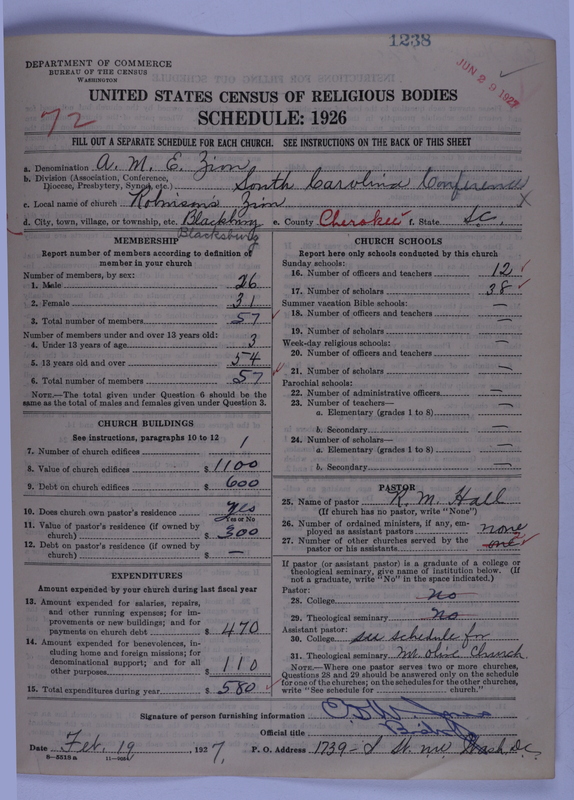 1238
DEPARTMENT OF COMMERCE
BUREAU OF THE CENSUS
WASHINGTON
JUN 29 1927
UNITED STATES CENSUS OF RELIGIOUS BODIES
72
SCHEDULE: 1926
FILL OUT A SEPARATE SCHEDULE FOR EACH CHURCH. SEE INSTRUCTIONS ON THE BACK OF THIS SHEET
a. Denomination A. M. E. Zion
b. Division (Association, Conference, Diocese, Presbytery, Synod, etc.) South Carolina Conference
c. Local name of church Robinson's Zion
d. City, town, village, or township, etc. Blackburg e. County Cherokee f. State S.C.
Blacksburg
MEMBERSHIP
Report number of members according to definition of
member in your church
Number of members, by sex:
1. Male 26
2. Female 31
3. Total number of members 57
Number of members under and over 13 years old:
4. Under 13 years of age 3
5. 13 years old and over 54
6. Total number of members 57
NOTE.—The total given under Question 6 should be the
same as the total of males and females given under Question 3.
CHURCH BUILDINGS
See instructions, paragraphs 10 to 12
7. Number of church edifices 1
8. Value of church edifices $ 1100
9. Debt on church edifices $ 600
10. Does church own pastor's residence? yes
Yes or No
11. Value of pastor's residence (if owned by
church) $ 300
12. Debt on pastor's residence (if owned by
church) $ —
EXPENDITURES
Amount expended by your church during last fiscal year
13. Amount expended for salaries, repairs,
and other running expenses; for im-
provements or new buildings; and for
payments on church debt $ 470
14. Amount expended for benevolences, in-
cluding home and foreign missions; for
denominational support; and for all
other purposes $ 110
15. Total expenditures during year $ 580
CHURCH SCHOOLS
Report here only schools conducted by this church
Sunday schools:
16. Number of officers and teachers 12
17. Number of scholars 38
Summer vacation Bible schools:
18. Number of officers and teachers —
19. Number of scholars —
Week-day religious schools:
20. Number of officers and teachers —
21. Number of scholars —
Parochial schools:
22. Number of administrative officers —
23. Number of teachers—
a. Elementary (grades 1 to 8) —
b. Secondary —
24. Number of scholars—
a. Elementary (grades 1 to 8) —
b. Secondary —
PASTOR
25. Name of pastor R. M. Hall
(If church has no pastor, write "None")
26. Number of ordained ministers, if any, em-
ployed as assistant pastors none
27. Number of other churches served by the
pastor or his assistants one
If pastor (or assistant pastor) is a graduate of a college or
theological seminary, give name of institution below. (If
not a graduate, write "No" in the space indicated.)
Pastor:
28. College no
29. Theological seminary no
Assistant pastor:
30. College see schedule for
31. Theological seminary Mt Olive Church
NOTE.—Where one pastor serves two or more churches,
Questions 28 and 29 should be answered only on the schedule
for one of the churches; on the schedules for the other churches,
write "See schedule for church."
Signature of person furnishing information
Official title Bishop
Date Feb. 19, 1927. P. O. Address 1739- S St. nw Wash. D.C.
8—5513a 11—9051